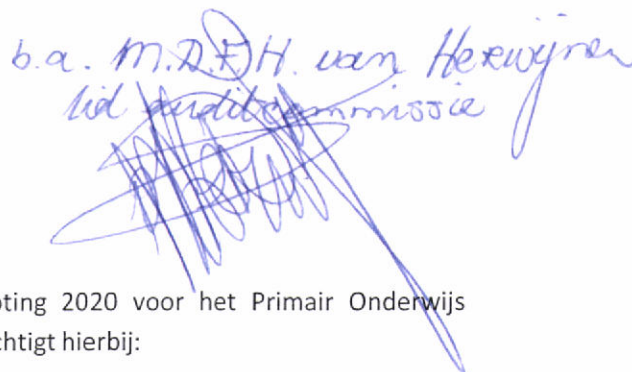 b.a. M.D.F.H. van Herwijnen
lid auditcommissie
oting 2020 voor het Primair Onderwijs
chtigt hierbij: